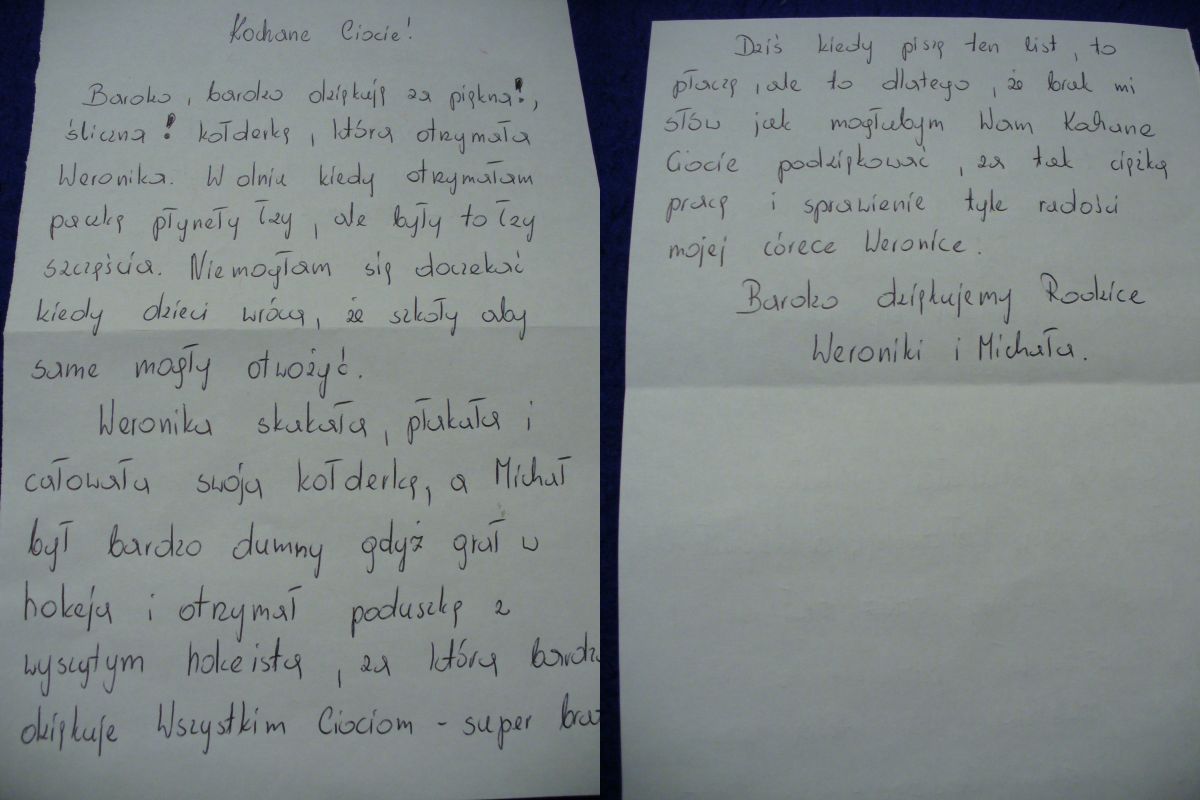 Kochane Ciocie!
Bardzo, bardzo dziękuję za piękną!,
śliczną! kołderkę, którą otrzymała
Weronika. W dniu kiedy otrzymałam
paczkę płyneły łzy, ale były to łzy
szczęścia. Niemogłam się doczekać
kiedy dzieci wrócą, że szkoły aby
same mogły otwożyć.
Weronika skakała, płakała i
całowała swoją kołderkę, a Michał
był bardzo dumny gdyż grał w
hokeja i otrzymał poduszkę z
wyszytym hokeistą, za którą bardzo
dziękuje Wszystkim Ciociom - super
Dziś kiedy piszę ten list, to
płaczę, ale to dlatego, że brak mi
słów jak mogłubym Wam Kochane
Ciocie podziękować, za tak ciężką
pracę i sprawienie tyle radości
mojej córece Weronice.
Bardzo dziękujemy Rodzice
Weroniki i Michała.